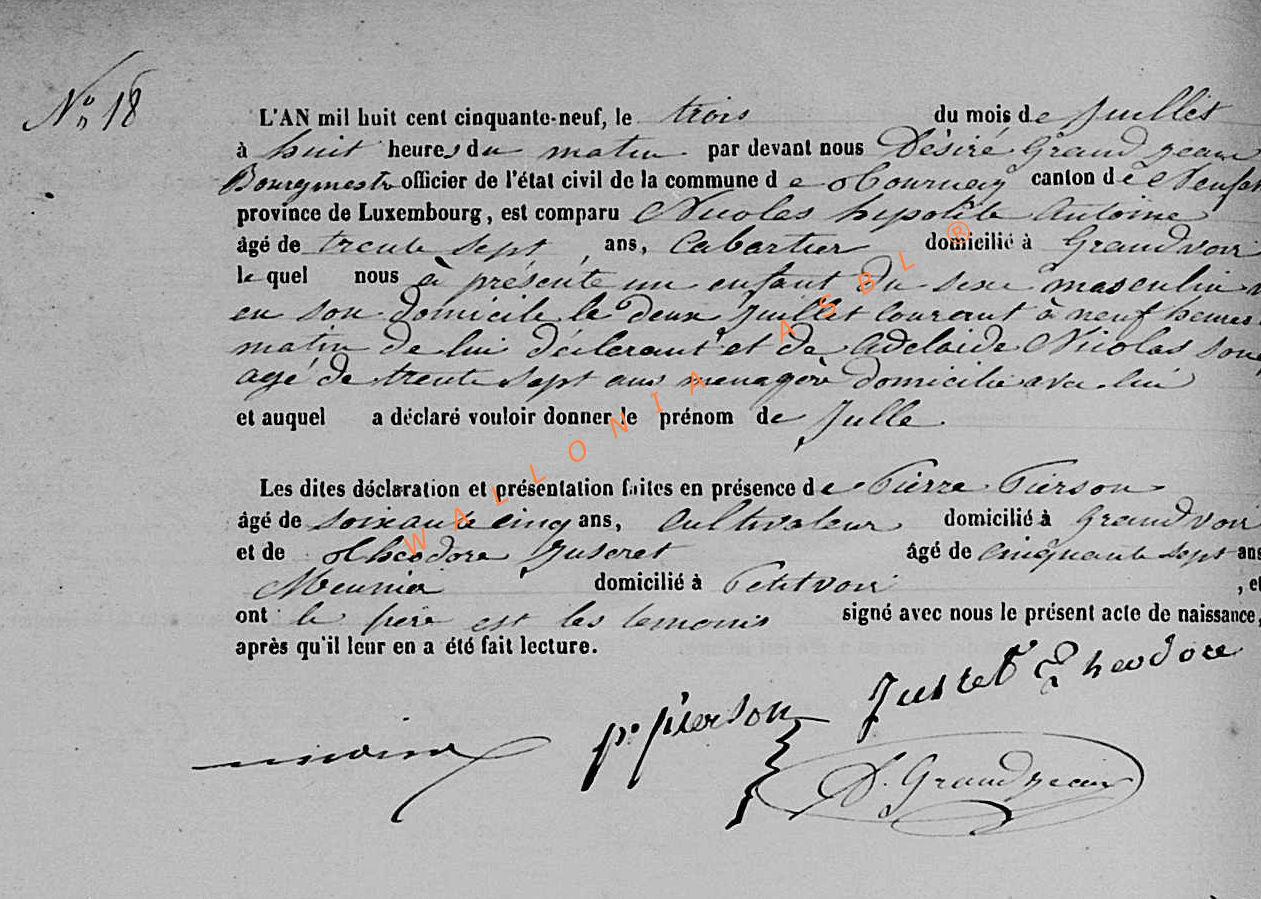 No 18
L'AN mil huit cent cinquante-neuf, le trois du mois de Juillet
à huit heures du matin par devant nous Désiré Grandjean
Bourgmestre officier de l'état civil de la commune de Tournay canton de Neufch
province de Luxembourg, est comparu Nicolas hypolite Antoine
âgé de trente sept ans, Cabartier domicilié à Grandvoir
le quel nous à présenté un enfant du sexe masculin
en son domicile le deux Juillet courant à neuf heures
matin de lui déclarant et de Adelaide Nicolas son
agé de trente sept ans menagère domicilié avec lui
et auquel a déclaré vouloir donner le prénom de Julle.
Les dites déclaration et présentation faites en présence de Pierre Pierson
âgé de soixante cinq ans, Cultivateur domicilié à Grandvoir
et de Théodore Juseret âgé de cinquante sept ans
Meunier domicilié à Petitvoir , et
ont le père est les temouis signé avec nous le présent acte de naissance,
après qu'il leur en a été fait lecture.
p. pierson Juseret Théodore
D. Grandjean
WALLONIA ASBL ®